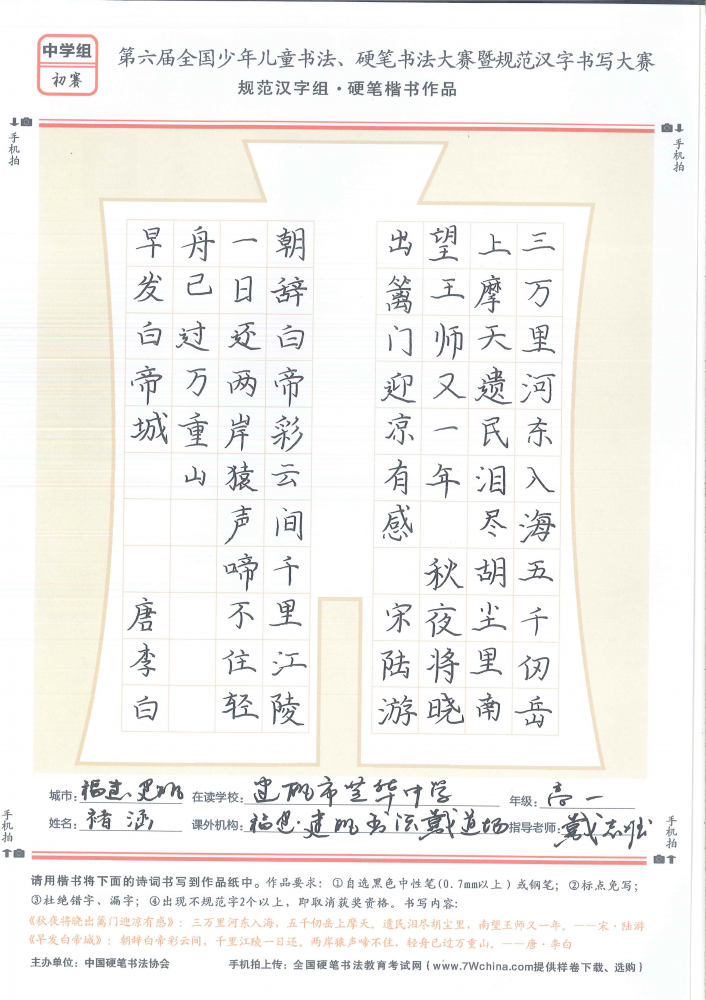 中学组
初赛
第六届全国少年儿童书法、硬笔书法大赛暨规范汉字书写大赛
规范汉字组·硬笔楷书作品
手机拍
手机拍
三万里河东入海五千仞岳
上摩天遗民泪尽胡尘里南
望王师又一年 秋夜将晓
出篱门迎凉有感 宋陆游
朝辞白帝彩云间千里江陵
一日还两岸猿声啼不住轻
舟已过万重山
早发白帝城 唐李白
城市：福建建瓯 在读学校：建瓯市芝华中学 年级：高一
姓名：褚涵 课外机构：福建·建瓯书法戴道场 指导老师：戴志
手机拍
手机拍
请用楷书将下面的诗词书写到作品纸中。作品要求：①自选黑色中性笔(0.7mm以上)或钢笔；②标点免写；
③杜绝错字、漏字；④出现不规范字2个以上，即取消获奖资格。书写内容：
《秋夜将晓出篱门迎凉有感》：三万里河东入海，五千仞岳上摩天。遗民泪尽胡尘里，南望王师又一年。——宋·陆游
《早发白帝城》：朝辞白帝彩云间，千里江陵一日还。两岸猿声啼不住，轻舟已过万重山。——唐·李白
主办单位：中国硬笔书法协会 手机拍上传：全国硬笔书法教育考试网(www.7Wchina.com提供样卷下载、选购)